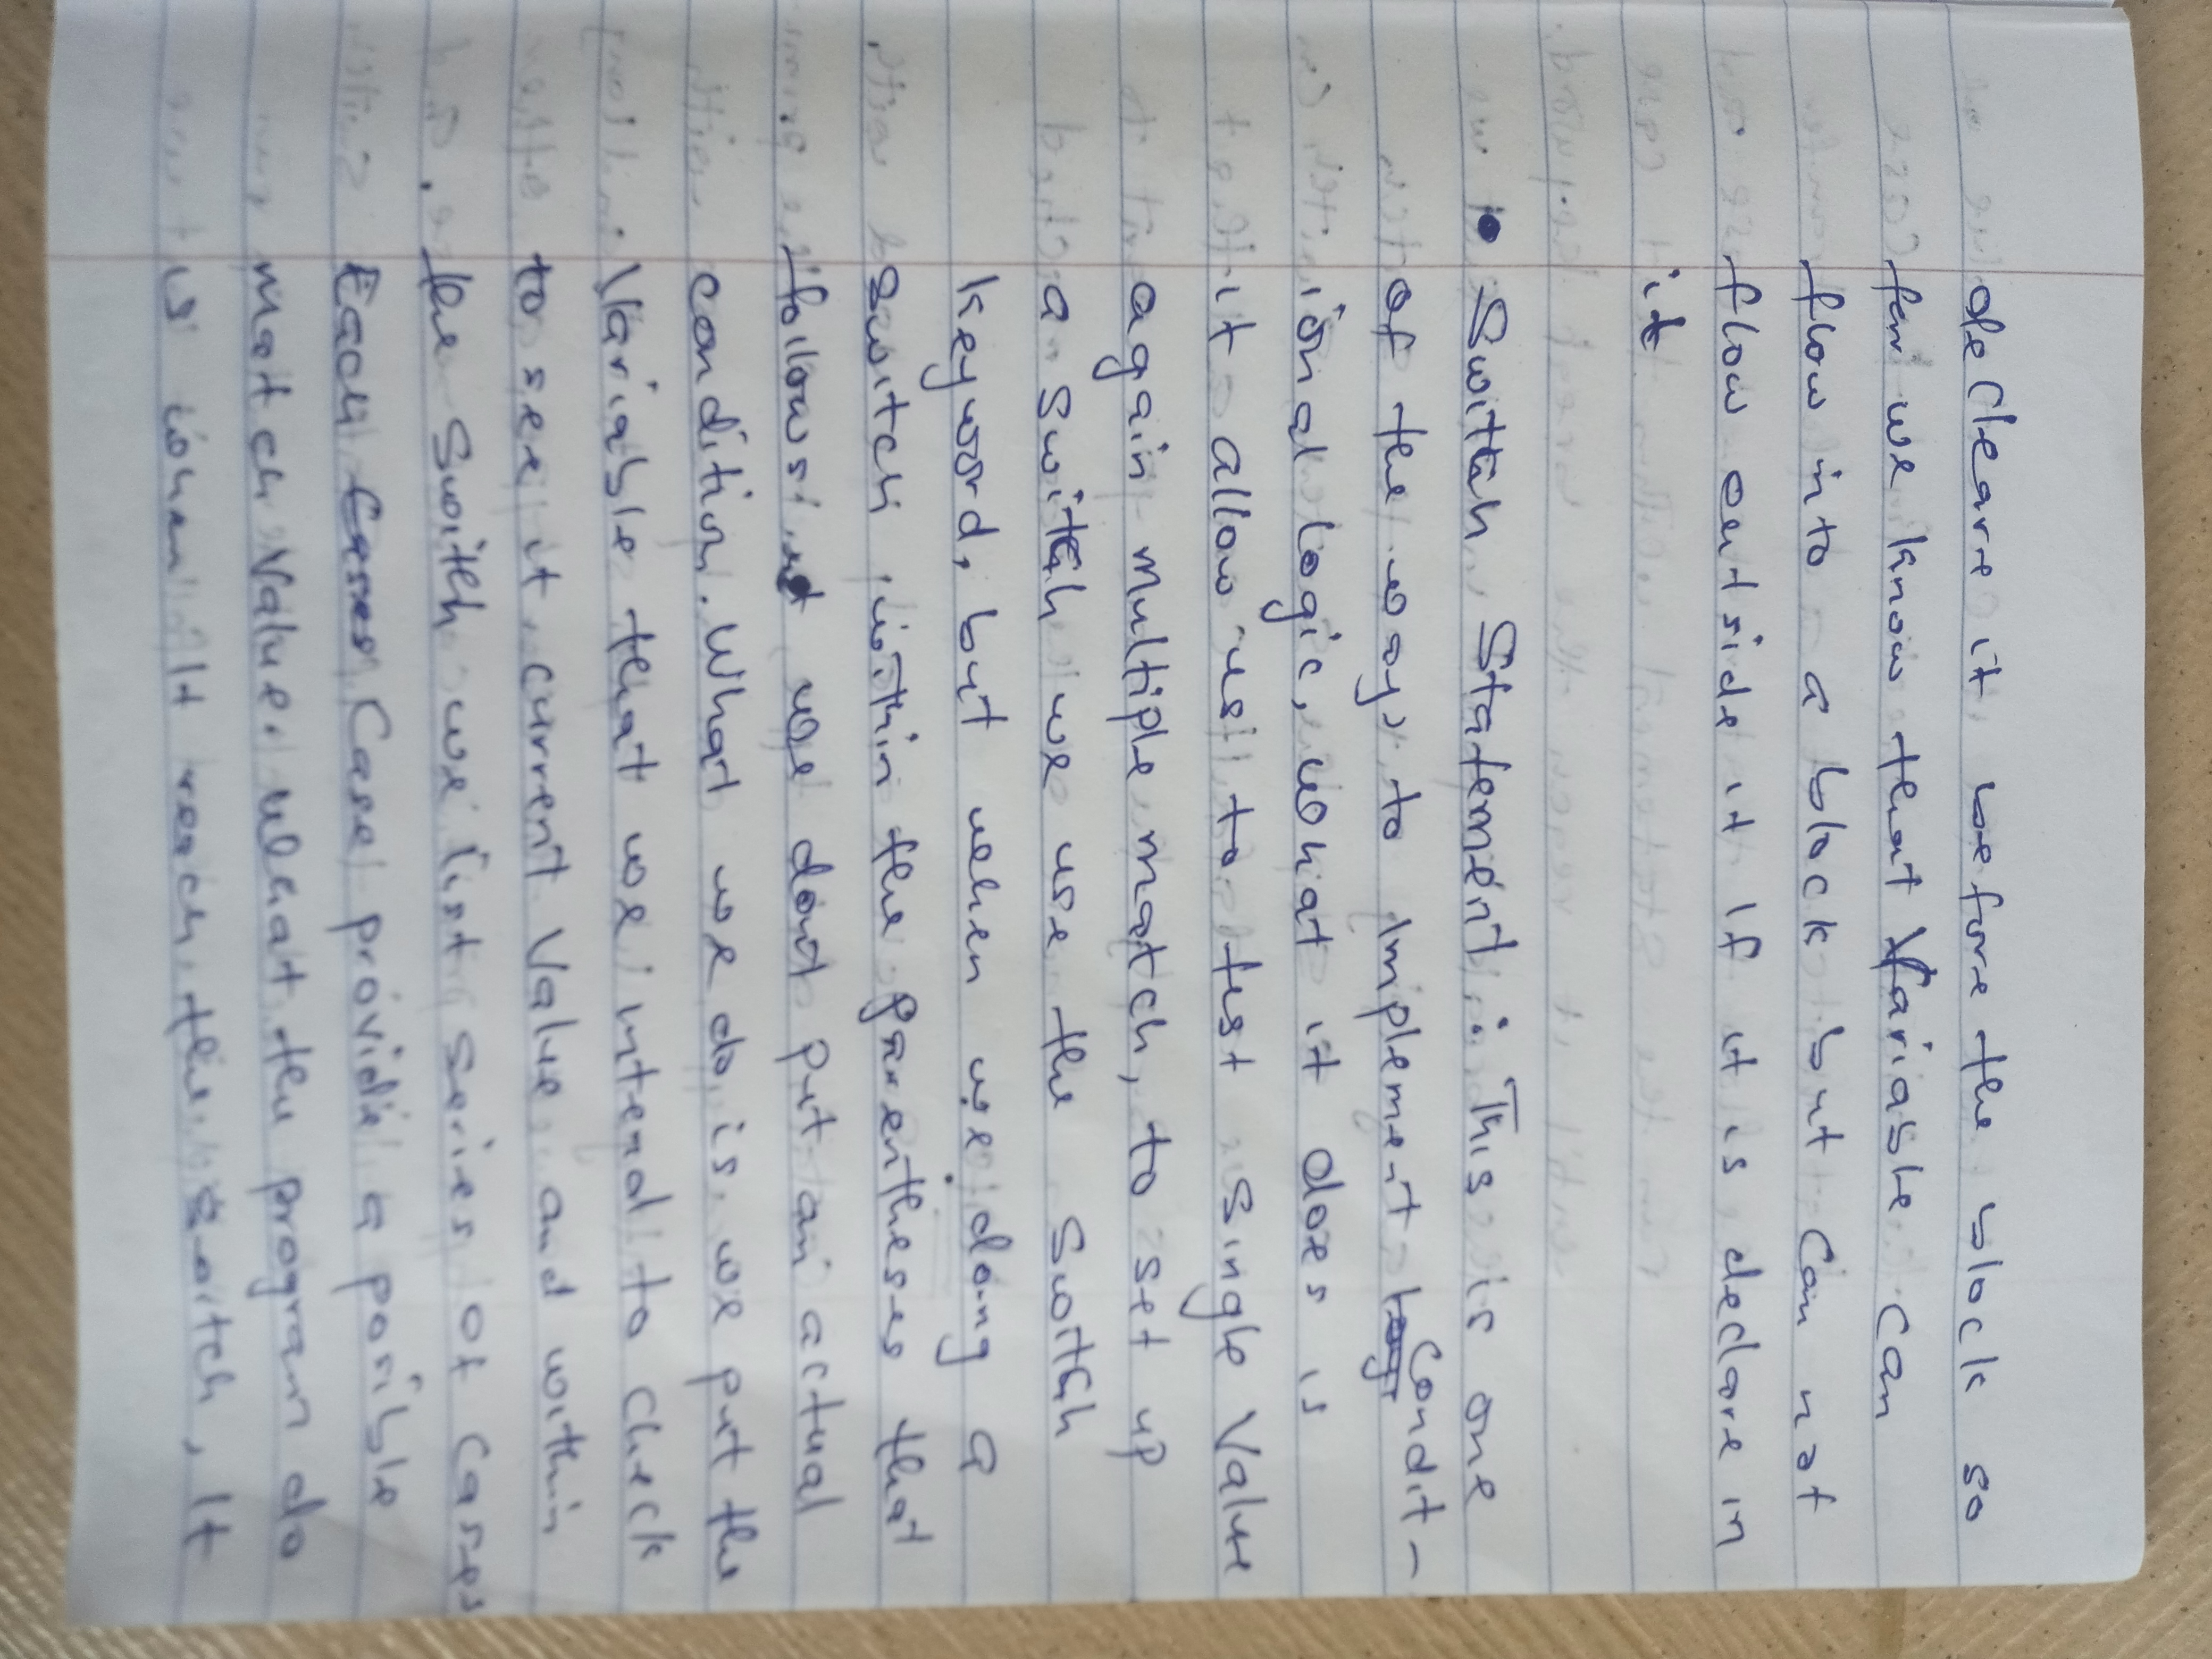 decleare it before the block so
far we know that Variable can
flow into a block but can not
flow outside it if it is declare in
it
• Switch Statement : This is one
of the ways to implement Condit-
ional logic, what it does is
it allow us to test a Single Value
again multiple match, to set up
a switch we use the Switch
keyword, but when we doing a
Switch within the parentheses that
follows we dont put an actual
condition. What we do is we put the
Variable that we intend to check
to see it current Value and within
the Switch we list series of Cases
Each Case provide a posible
match Value. what the program do
is when it reach the switch, It